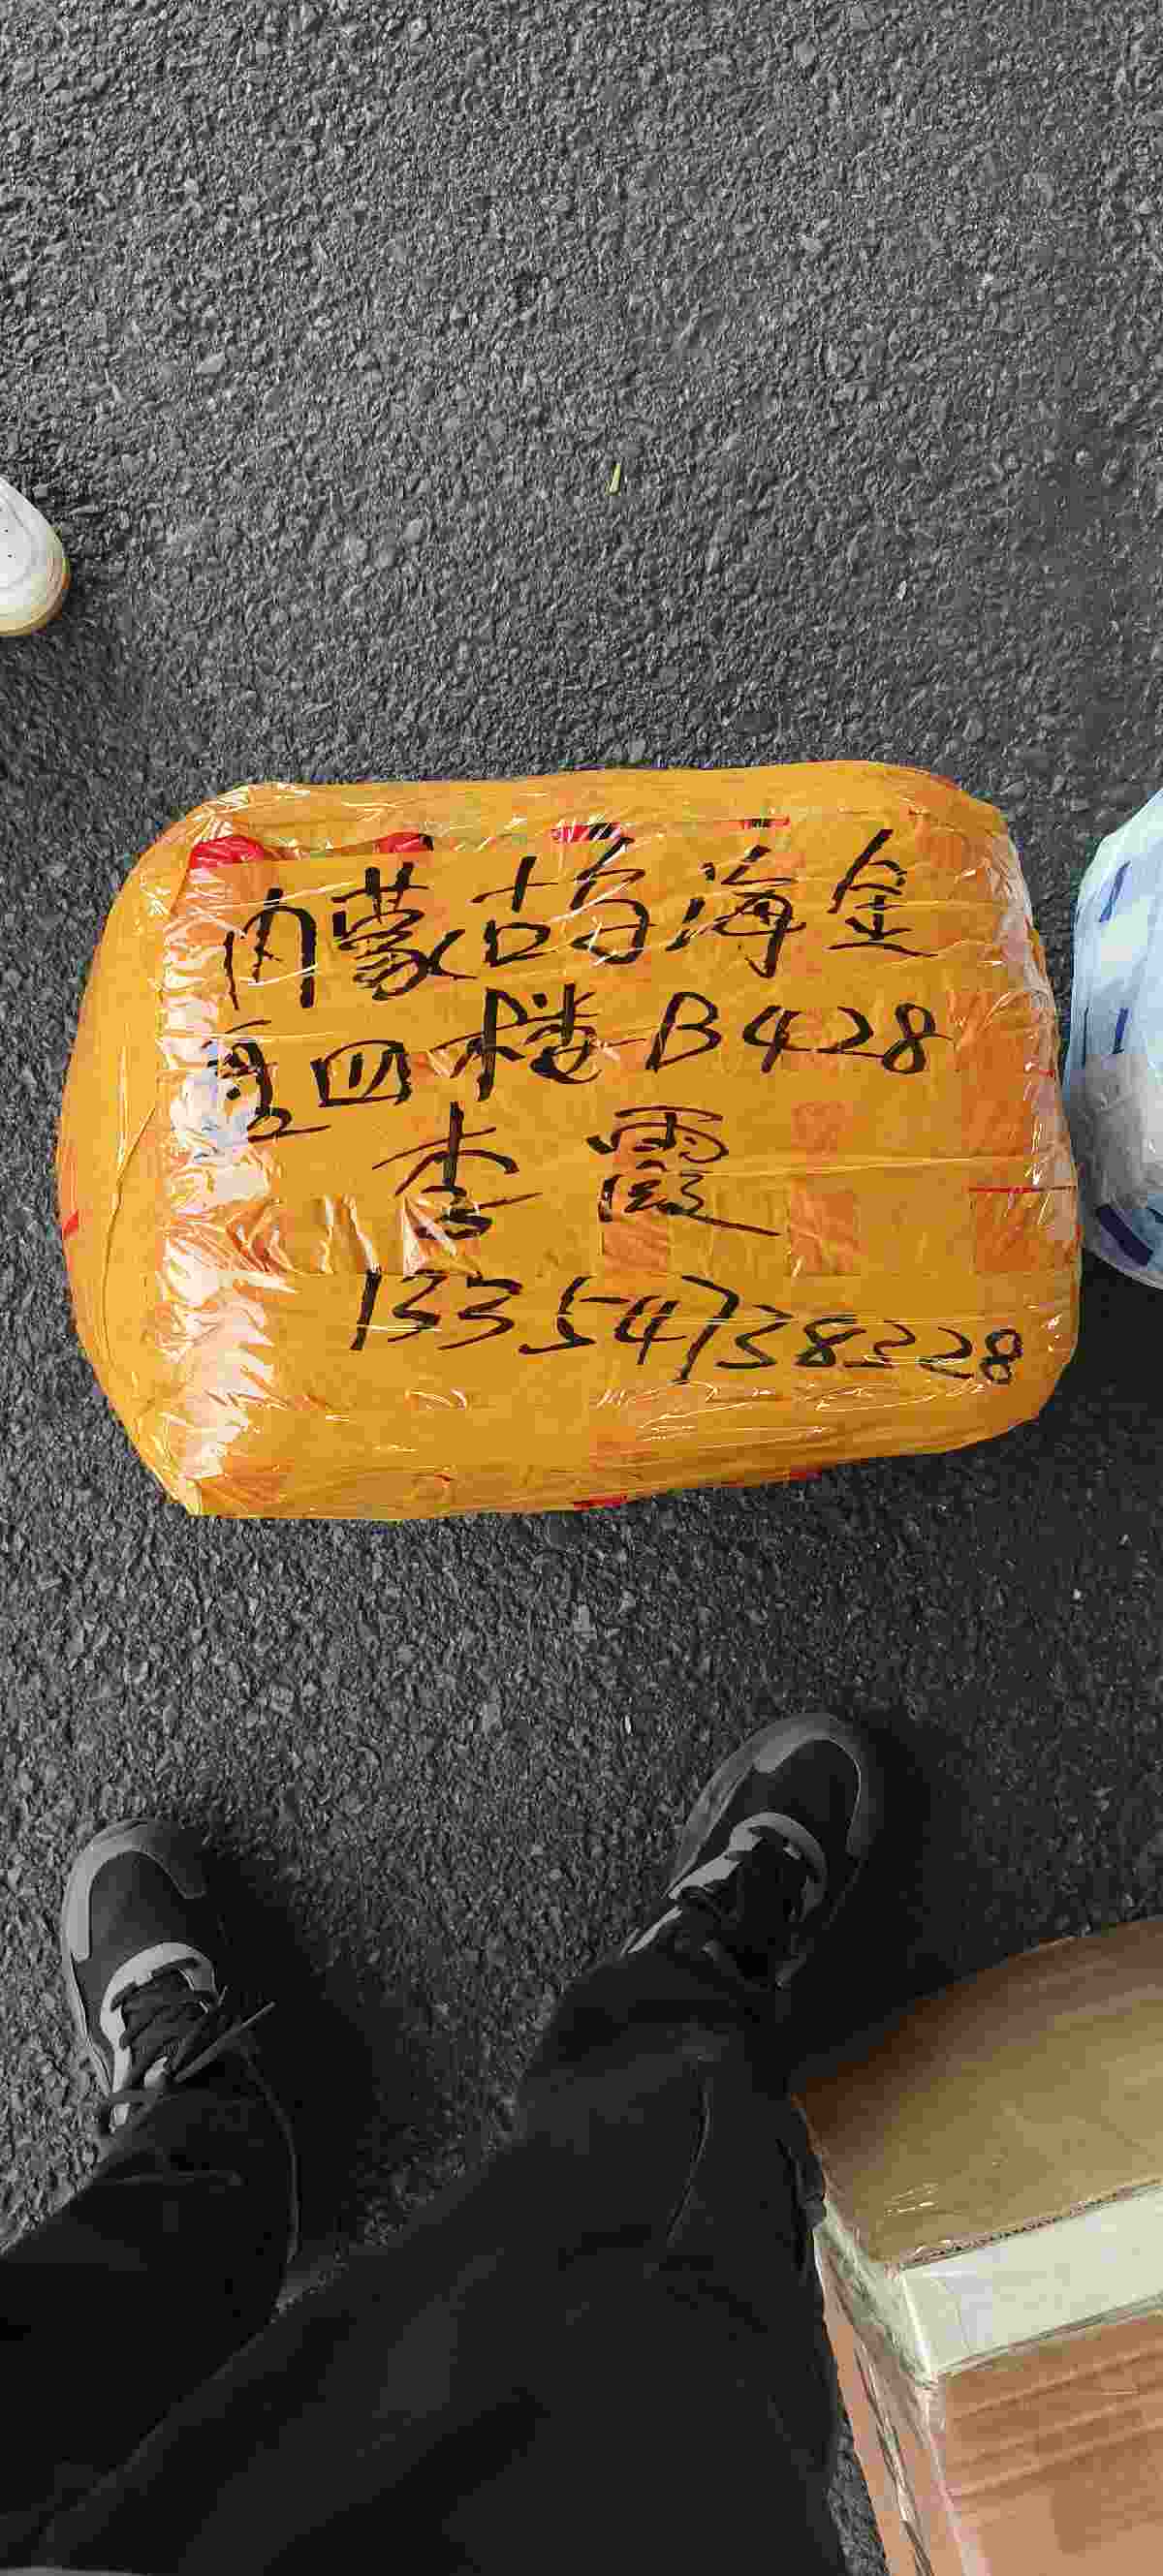 内蒙古乌海金
四楼 B428
李霞
13354738228